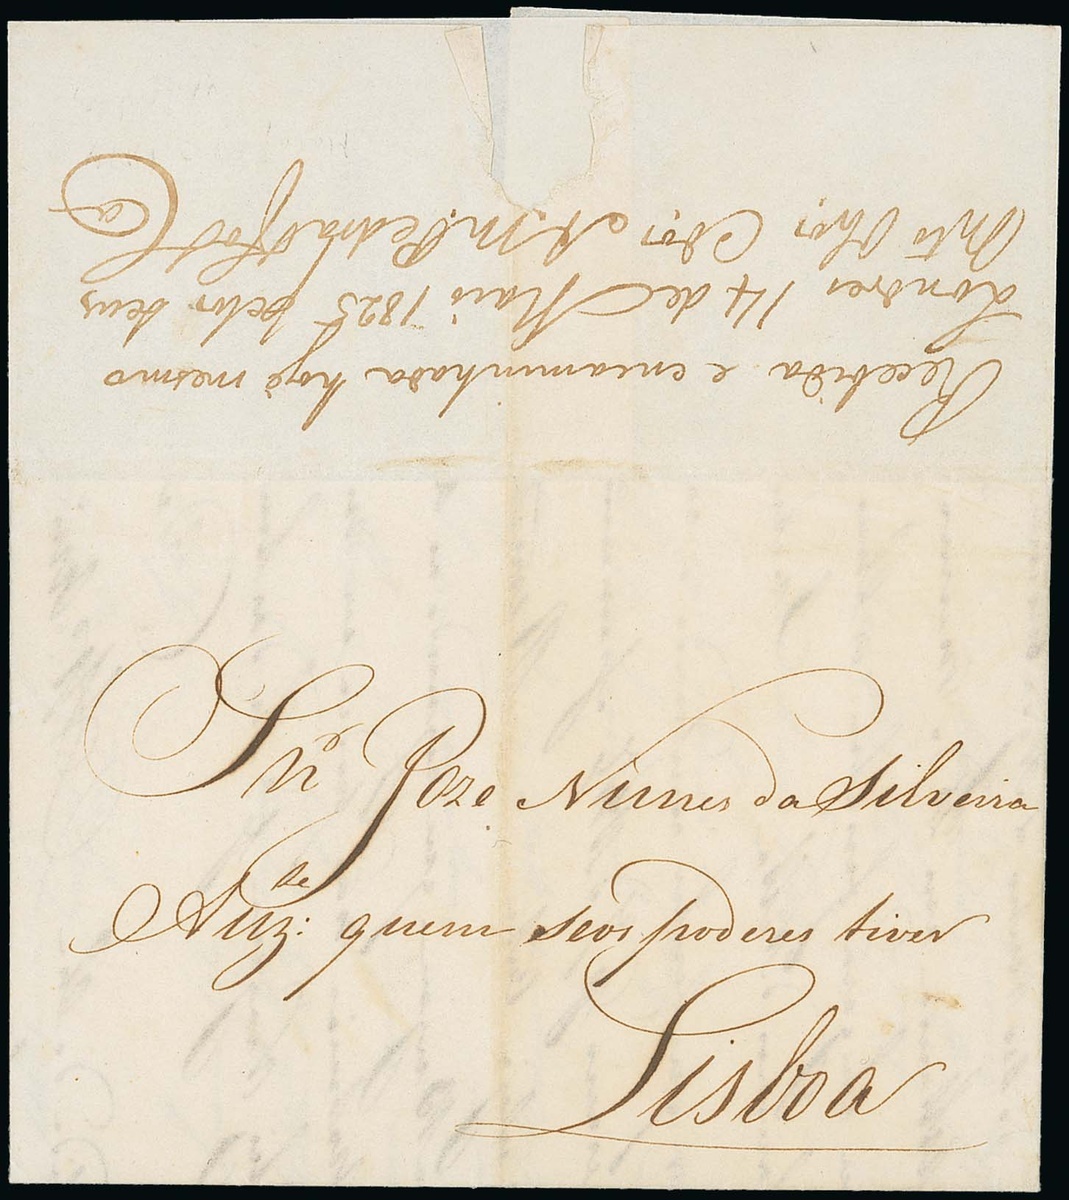 Recebida e encaminhada hoje mesmo
Londres 14 de Maio 1825 pelos seus
Mto Obros Cros
Snr Joze Nunes da Silveira
Auz: de quem seos poderes tiver
Lisboa